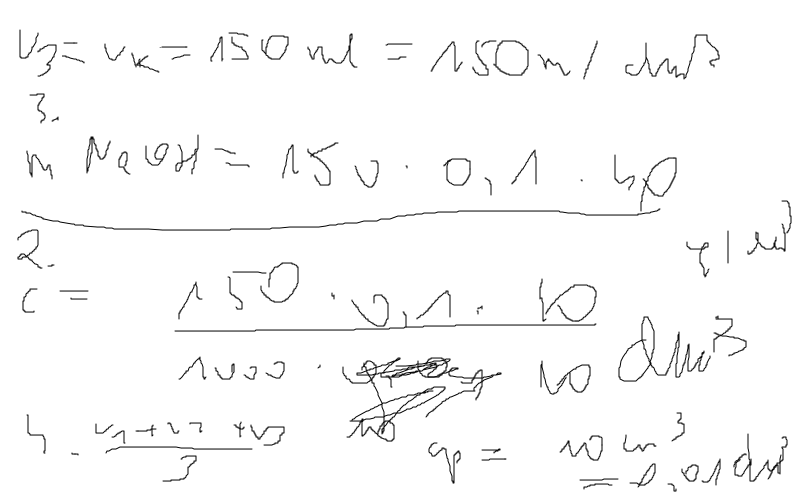 V3 = VK = 150 ml = 150 m / dm3
3.
m NaOH = 150 · 0,1 · 40
2.
g / dm3
c = 150 · 0,1 · 40
1000 · 10 dm3
4. V1 + V2 + V3
3
10 cm3
= 0,01 dm3